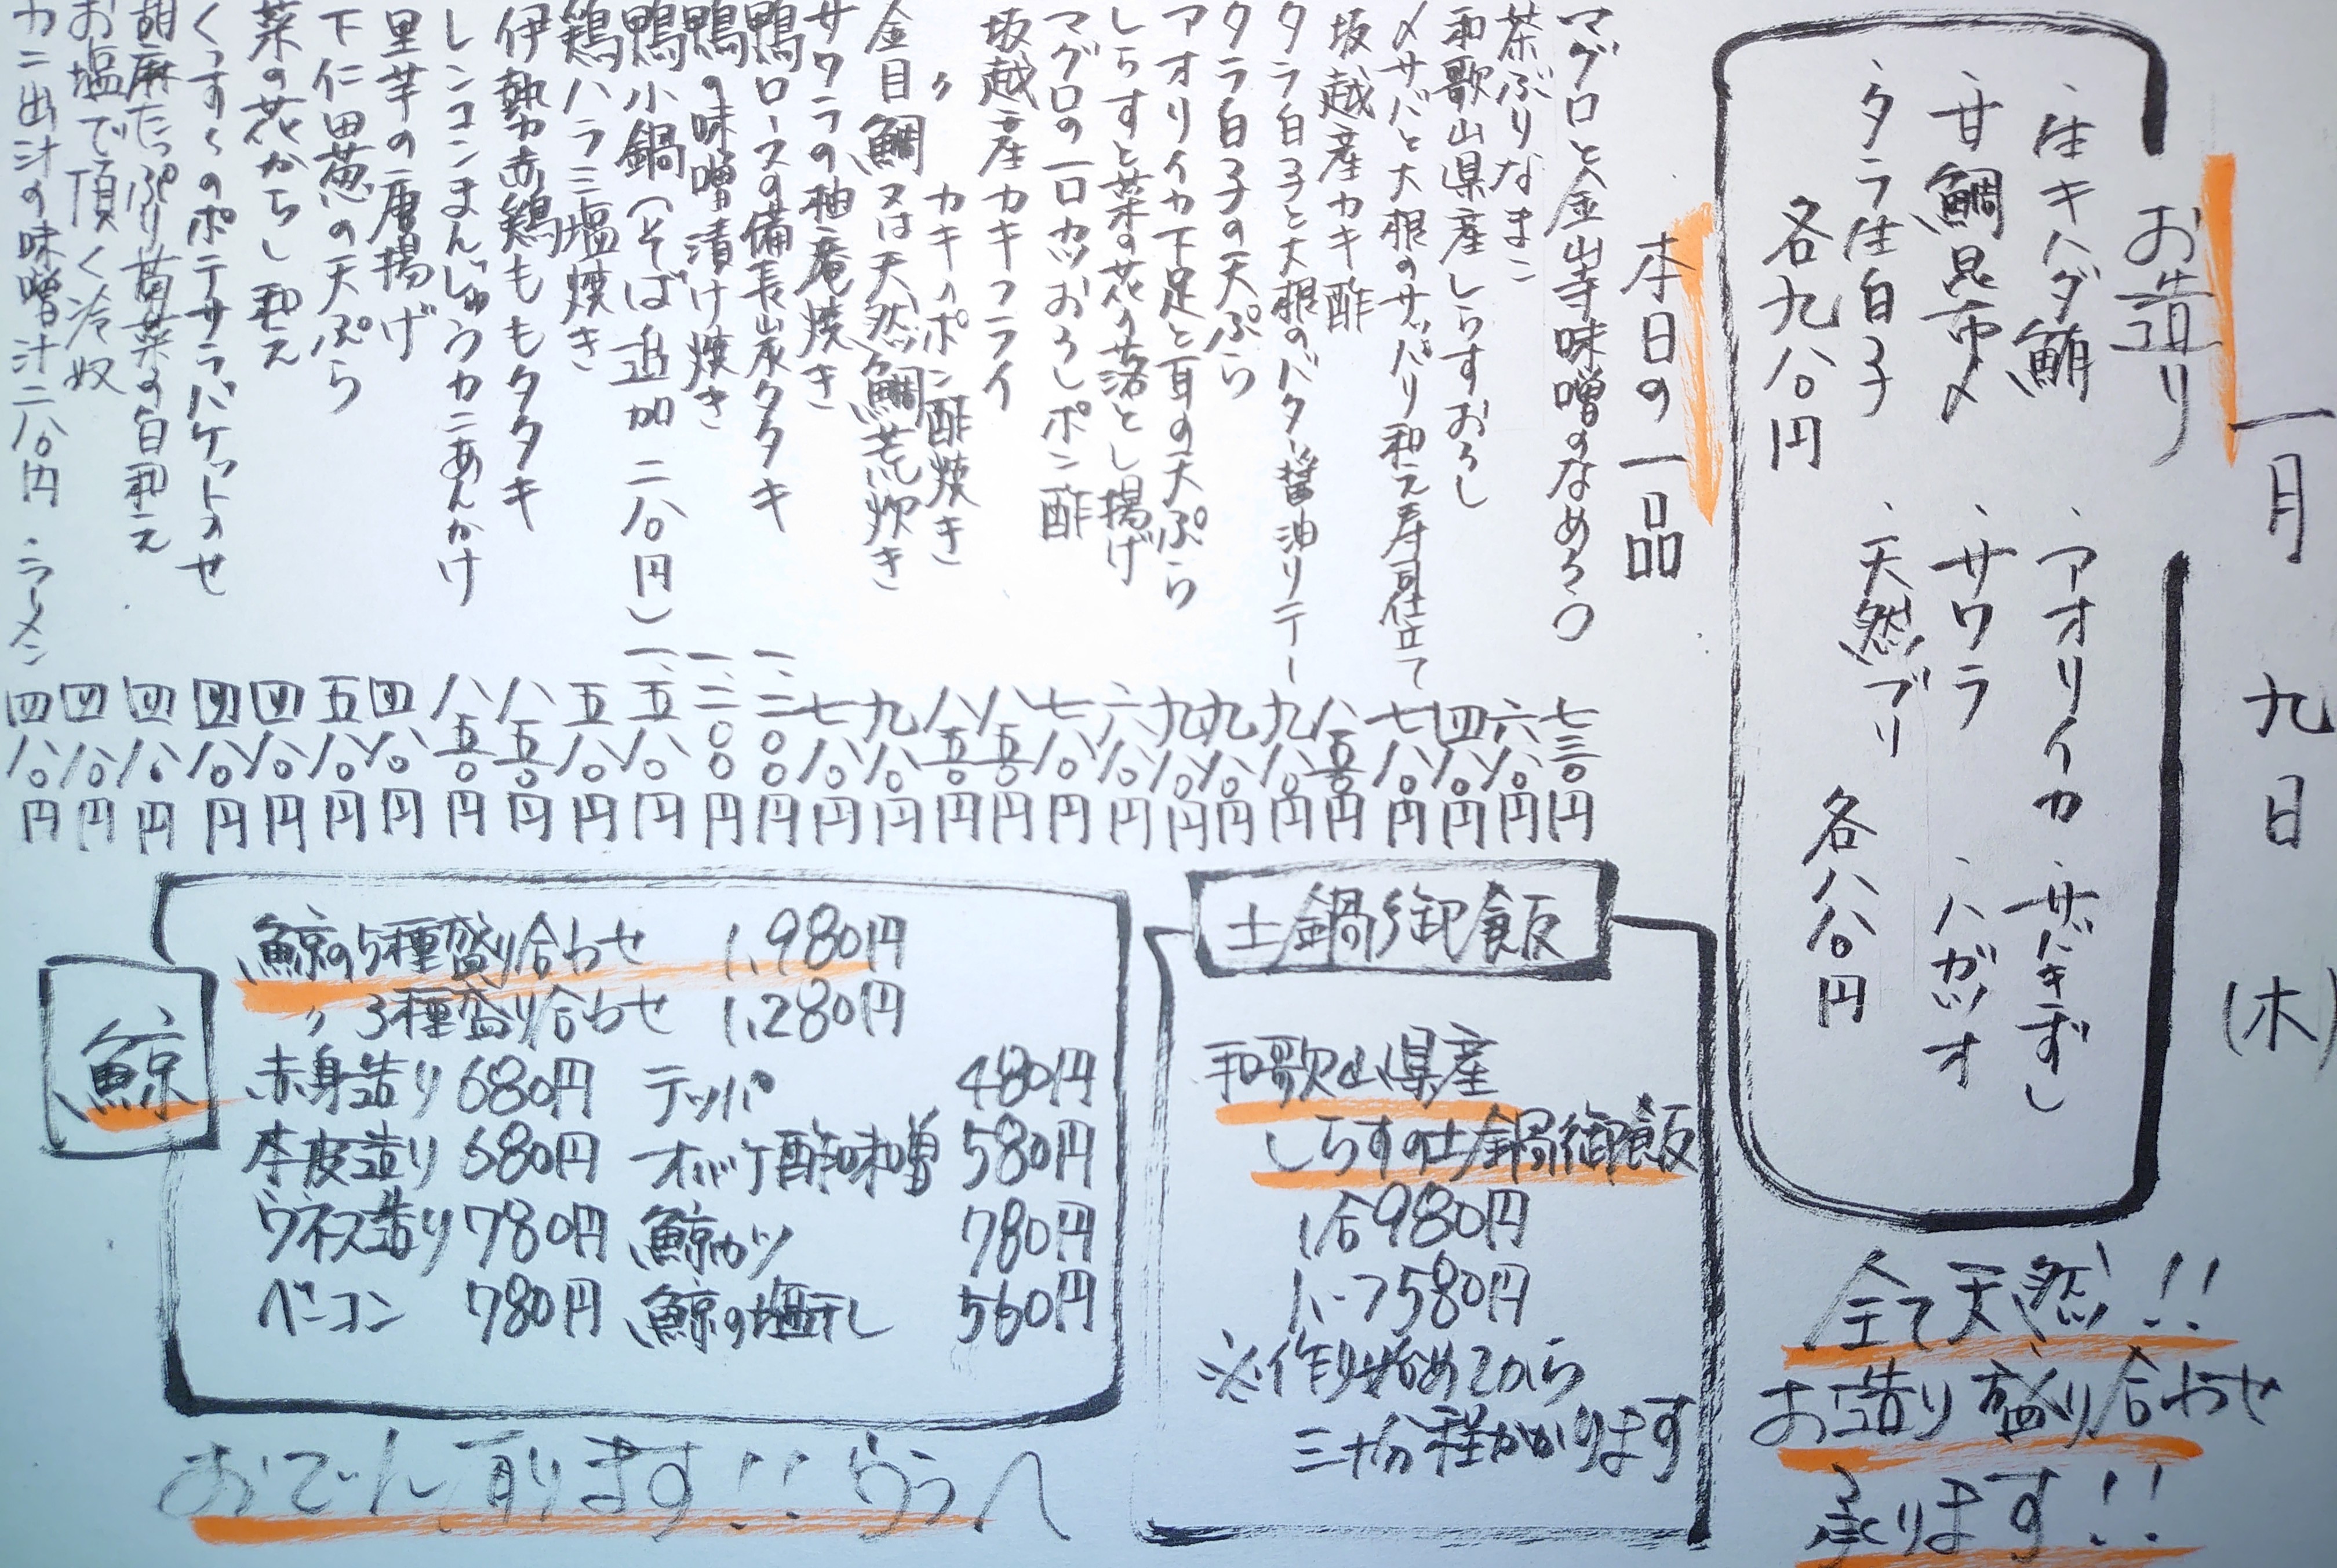 一月九日(木)
お造り
・生キハダ鮪
・甘鯛昆布〆
・タラ生白子
各九八〇円
・アオリイカ
・サワラ
・天然ブリ
・サバきずし
・ハガツオ
各八八〇円
全て天然!!
お造り盛り合わせ
承ります!!
本日の一品
マグロと金山寺味噌のなめろう 七三〇円
茶ぶりなまこ 六八〇円
和歌山県産しらすおろし 四八〇円
〆サバと大根のサッパリ和え寿司仕立て 七八〇円
坂越産カキ酢 八五〇円
タラ白子と大根のバター醤油ソテー 九八〇円
タラ白子の天ぷら 九八〇円
アオリイカ下足と耳の天ぷら 九八〇円
しらすと菜の花の落とし揚げ 六八〇円
マグロの一口カツおろしポン酢 七八〇円
坂越産カキフライ 八五〇円
〃 カキのポン酢焼き 八五〇円
金目鯛又は天然鯛荒炊き 九八〇円
サワラの柚庵焼き 七八〇円
鴨ロースの備長炭タタキ 一、二〇〇円
鴨の味噌漬け焼き 一、二〇〇円
鴨小鍋(そば追加 二八〇円) 一、五八〇円
鶏ハラミ塩焼き 五八〇円
伊勢赤鶏ももタタキ 八五〇円
レンコンまんじゅうカニあんかけ 八五〇円
里芋の唐揚げ 四八〇円
下仁田葱の天ぷら 五八〇円
菜の花からし和え 四八〇円
くんすくのポテサラバケットのせ 四八〇円
胡麻たっぷり菊菜の白和え 四八〇円
お塩で頂く冷奴 四八〇円
カニ出汁の味噌汁二八〇円 ・ラーメン 四八〇円
土鍋御飯
和歌山県産
しらすの土鍋御飯
1合980円
ハーフ580円
※作り始めてから
三十分程かかります
鯨
鯨の5種盛り合わせ 1,980円
〃 3種盛り合わせ 1,280円
赤身造り 680円 テッパ 480円
本皮造り 680円 オバケ酢味噌 580円
ウネス造り 780円 鯨カツ 780円
ベーコン 780円 鯨の塩干し 560円
おでん有ります!!うらへ